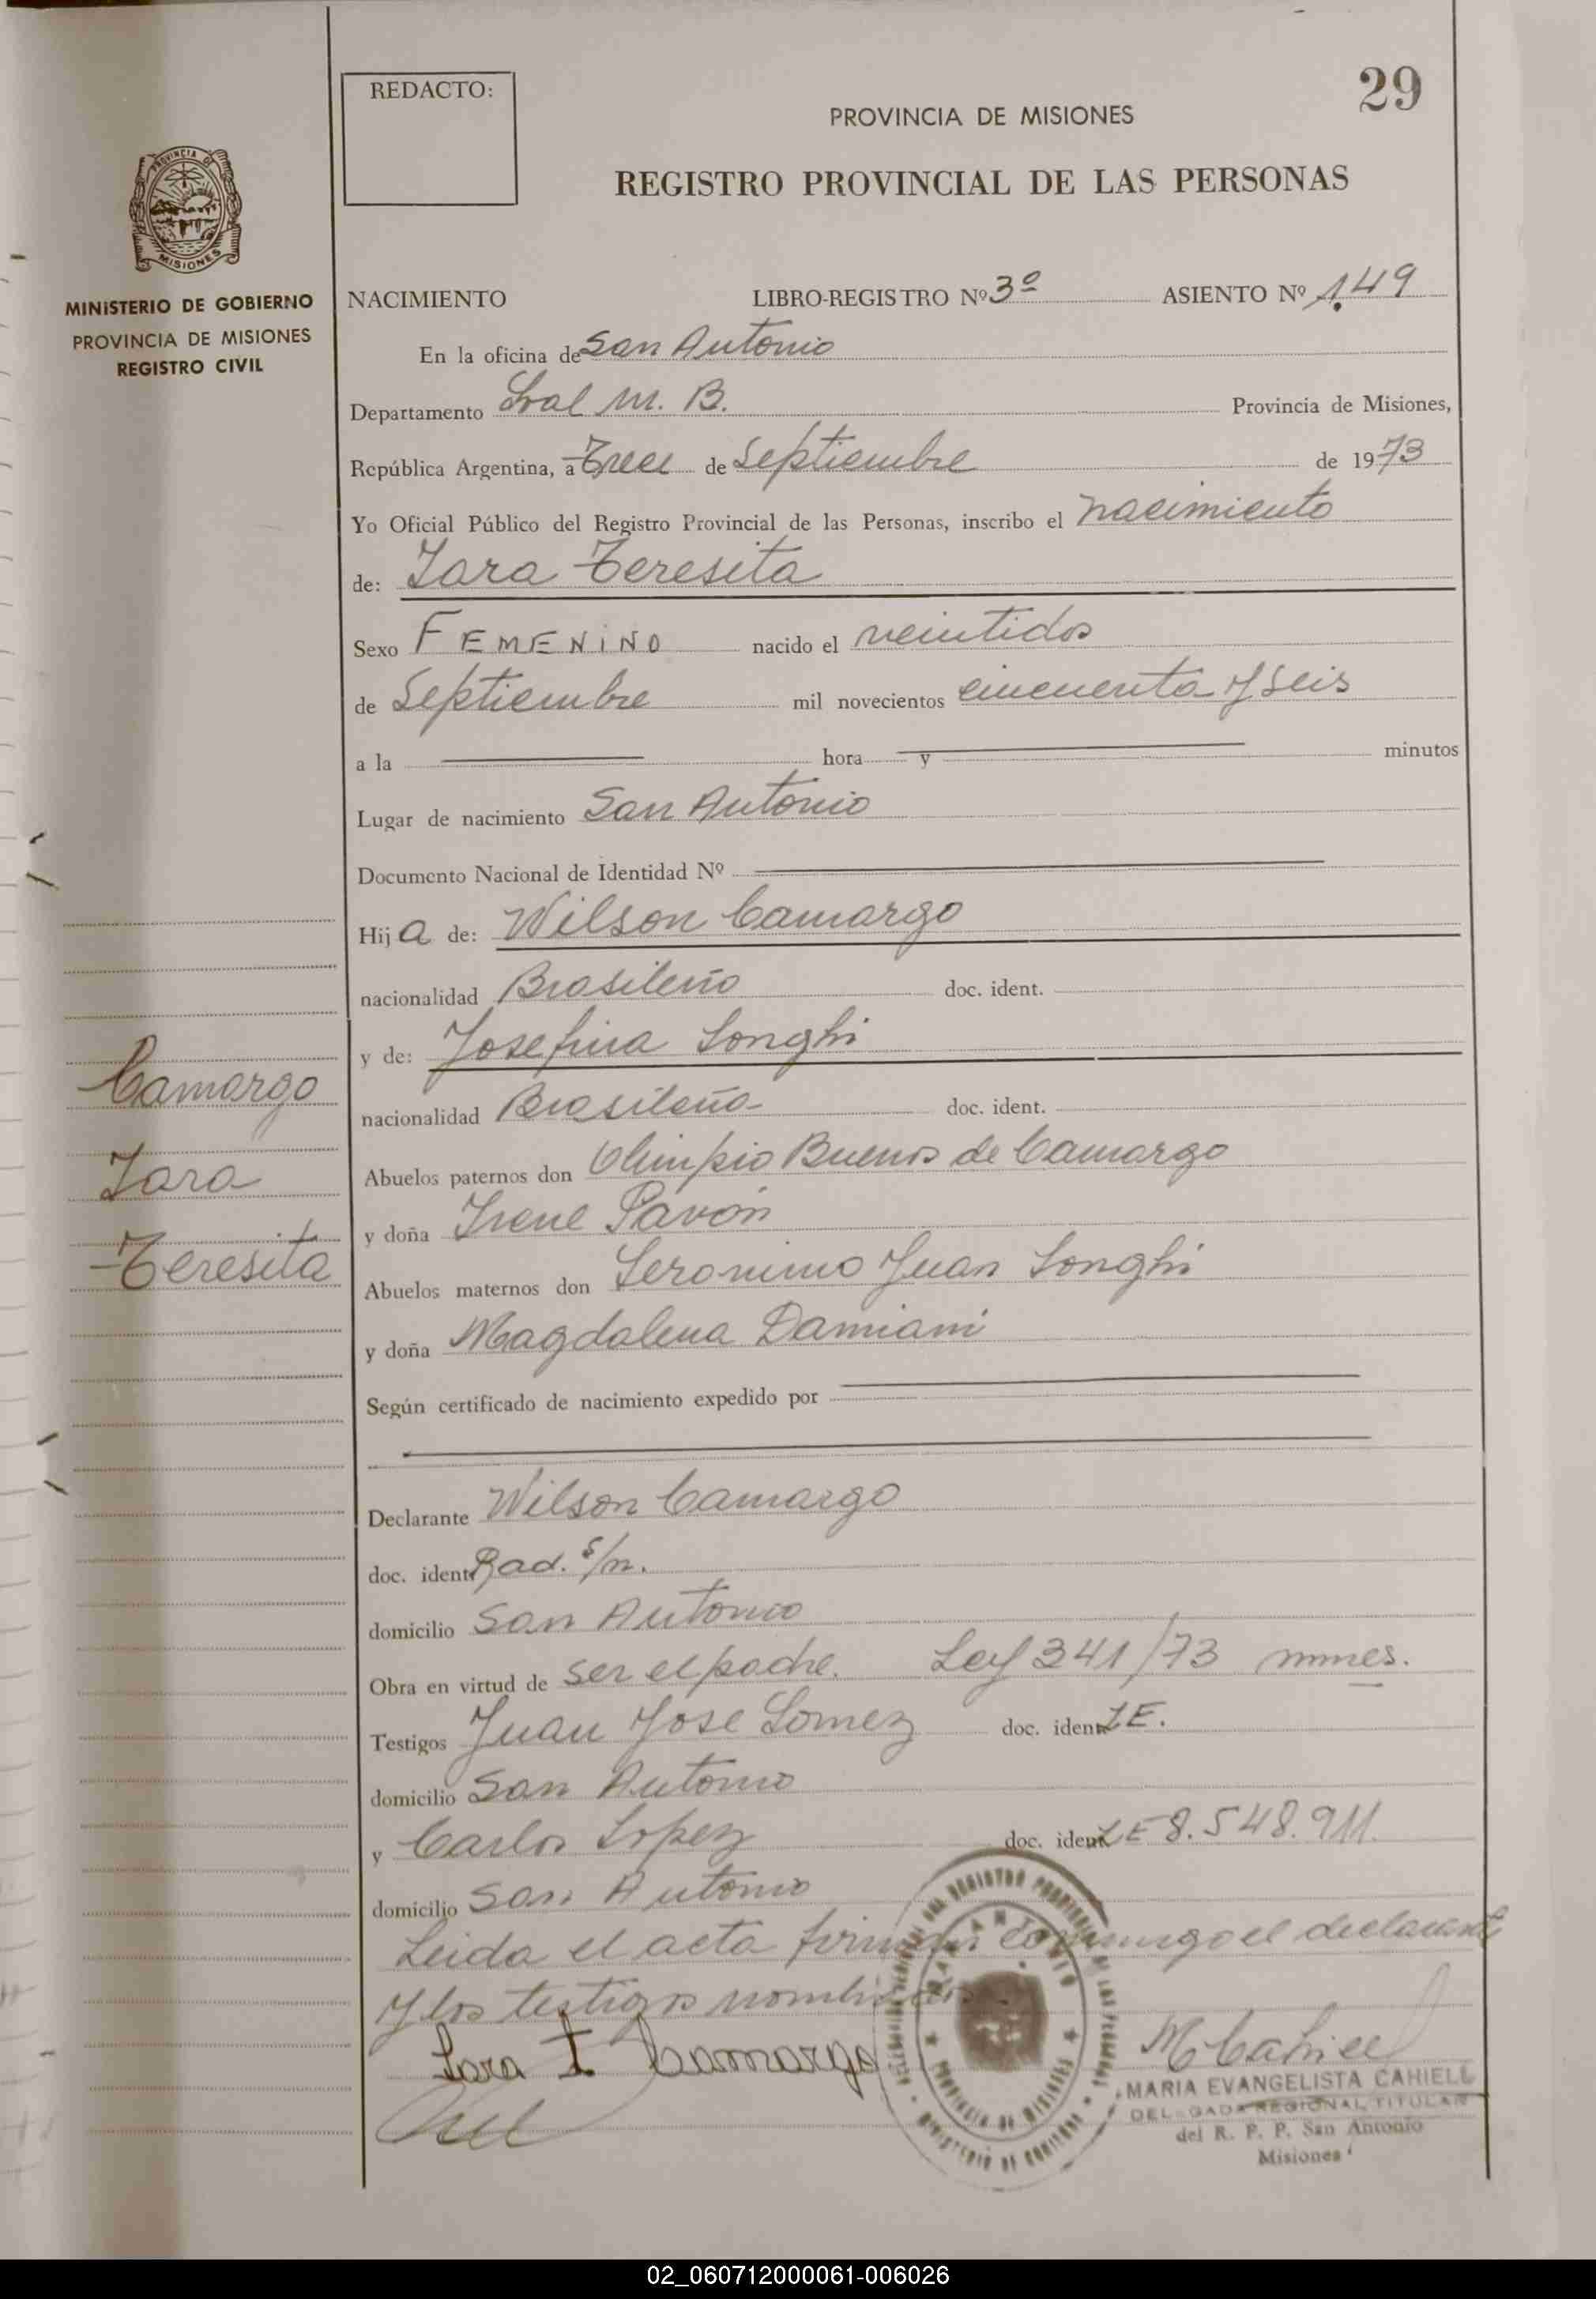 29
REDACTO:
PROVINCIA DE MISIONES
REGISTRO PROVINCIAL DE LAS PERSONAS
PROVINCIA DE
MISIONES
MINISTERIO DE GOBIERNO
PROVINCIA DE MISIONES
REGISTRO CIVIL
NACIMIENTO LIBRO-REGISTRO Nº 3º ASIENTO Nº 149
En la oficina de San Antonio
Departamento Gral M. B. Provincia de Misiones,
República Argentina, a Trece de Septiembre de 1973
Yo Oficial Público del Registro Provincial de las Personas, inscribo el nacimiento
de: Zara Teresita
Sexo FEMENINO nacido el veintidos
de Septiembre mil novecientos cincuenta y seis
a la hora y minutos
Lugar de nacimiento San Antonio
Documento Nacional de Identidad Nº
Hij a de: Wilson Camargo
nacionalidad Brasileño doc. ident.
y de: Josefina Longhi
nacionalidad Brasileña doc. ident.
Abuelos paternos don Olimpio Buenos de Camargo
y doña Irene Pavón
Abuelos maternos don Geronimo Juan Longhi
y doña Magdalena Damiani
Según certificado de nacimiento expedido por
Camargo
Zara
Teresita
Declarante Wilson Camargo
doc. ident. Rad. s/n.
domicilio San Antonio
Obra en virtud de ser el padre. Ley 341/73 mnes.
Testigos Juan Jose Gomez doc. ident. L E.
domicilio San Antonio
y Carlos Lopez doc. ident. L E 8.548.911.
domicilio San Antonio
Leida el acta firman conmigo el declarante
y los testigos nombrados
Camargo
MCahiell
MARIA EVANGELISTA CAHIELL
DELEGADA REGIONAL TITULAR
del R. P. P. San Antonio
Misiones
02_060712000061-006026